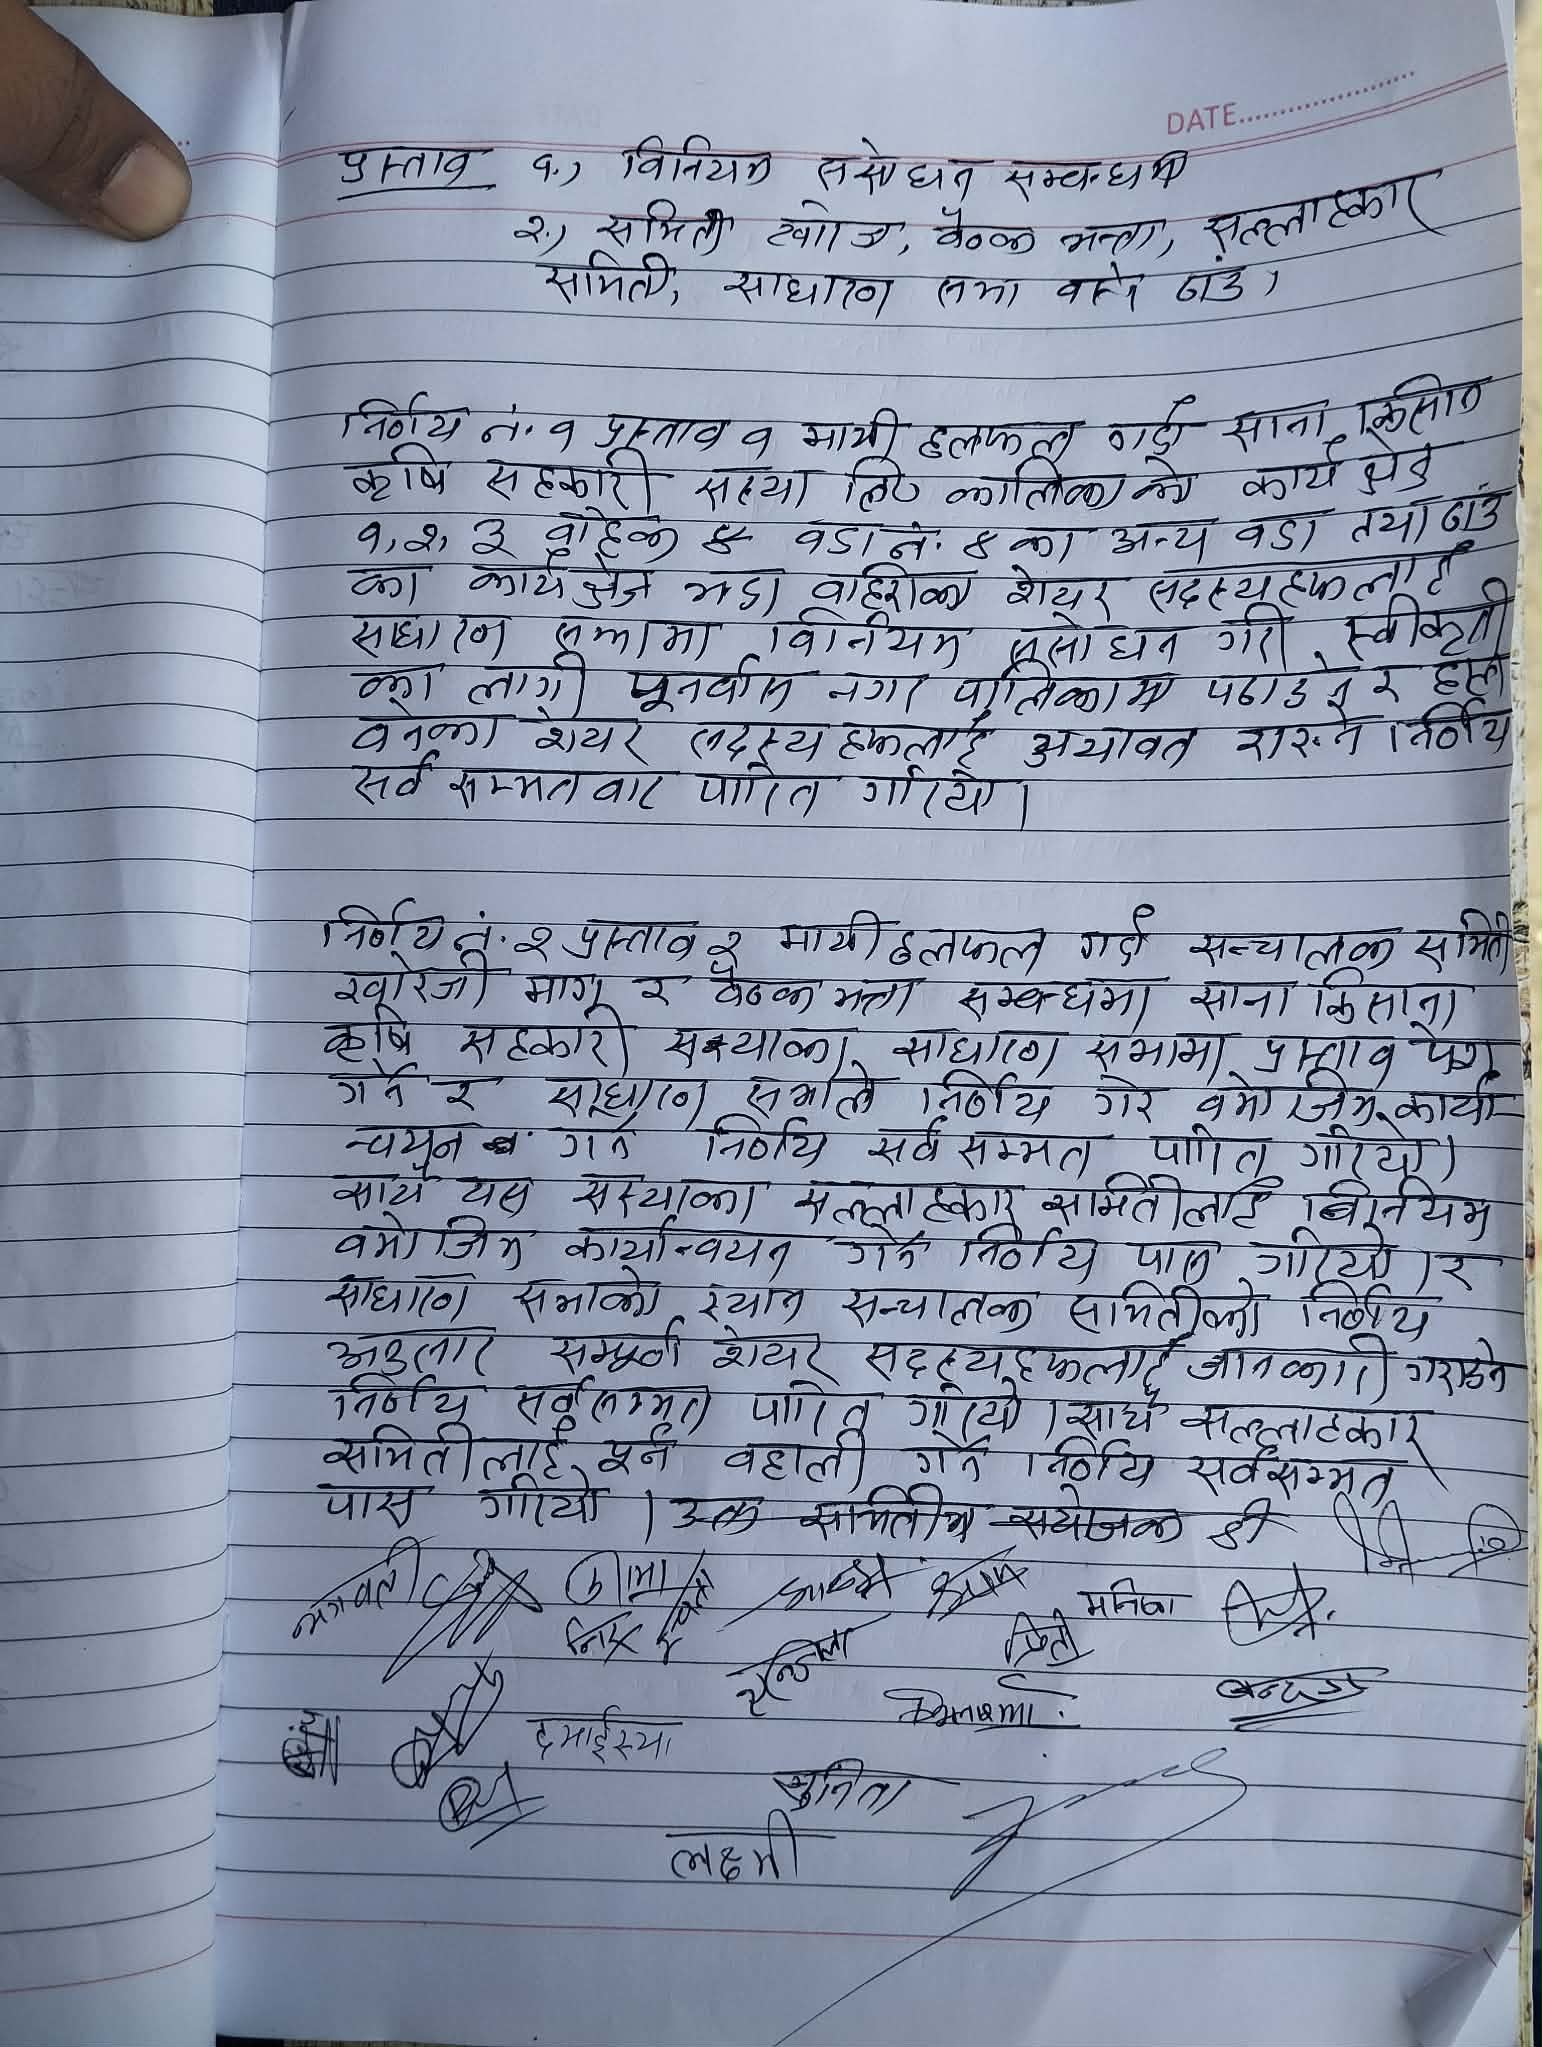 DATE
प्रस्ताव १.) विनियम संसोधन सम्बन्धमा
२.) समिती खोज, बैठक भत्ता, सल्लाहकार
समिती, साधारण सभा बस्ने ठाउं।
निर्णय नं. १ प्रस्ताव १ माथी छलफल गर्दा साना किसान
कृषि सहकारी संस्था लि कालिकाको कार्य क्षेत्र
१, २, ३ वाहेक वडा नं. ४ का अन्य वडा तथा ठाउं
का कार्य क्षेत्र भन्दा वाहिरका शेयर सदस्यहरुलाई
साधारण सभामा विनियम संसोधन गरी स्वीकृती
का लागी पूनर्वास नगर पालिकामा पठाउने र हाल
बनेका शेयर सदस्य हरुलाई यथावत राख्ने निर्णय
सर्व सम्मतवाट पारित गरियो।
निर्णय नं. २ प्रस्ताव २ माथी छलफल गर्दा सन्चालक समिती
खारेजी माग र बैठक भत्ता सम्बन्धमा साना किसान
कृषि सहकारी संस्थाका साधारण सभामा प्रस्ताव पेश
गर्ने र साधारण सभाले निर्णय गरे वमोजिम कार्या
न्वयन गर्ने निर्णय सर्व सम्मत पारित गरियो।
साथै यस संस्थाका सल्लाहकार समितीलाई विनियम
वमोजिम कार्यान्वयन गर्ने निर्णय पास गरियो। र
साधारण सभाको स्थान सन्चालक समितीको निर्णय
अनुसार सम्पूर्ण शेयर सदस्यहरुलाई जानकारी गराउने
निर्णय सर्वसम्मत पारित गरियो। साथै सल्लाहकार
समितीलाई पूर्न वहाली गर्ने निर्णय सर्वसम्मत
पास गरियो। उक्त समितीमा संयोजक श्री
भगवती
मनिका
दमाईस्या
सुनिता
लक्ष्मी